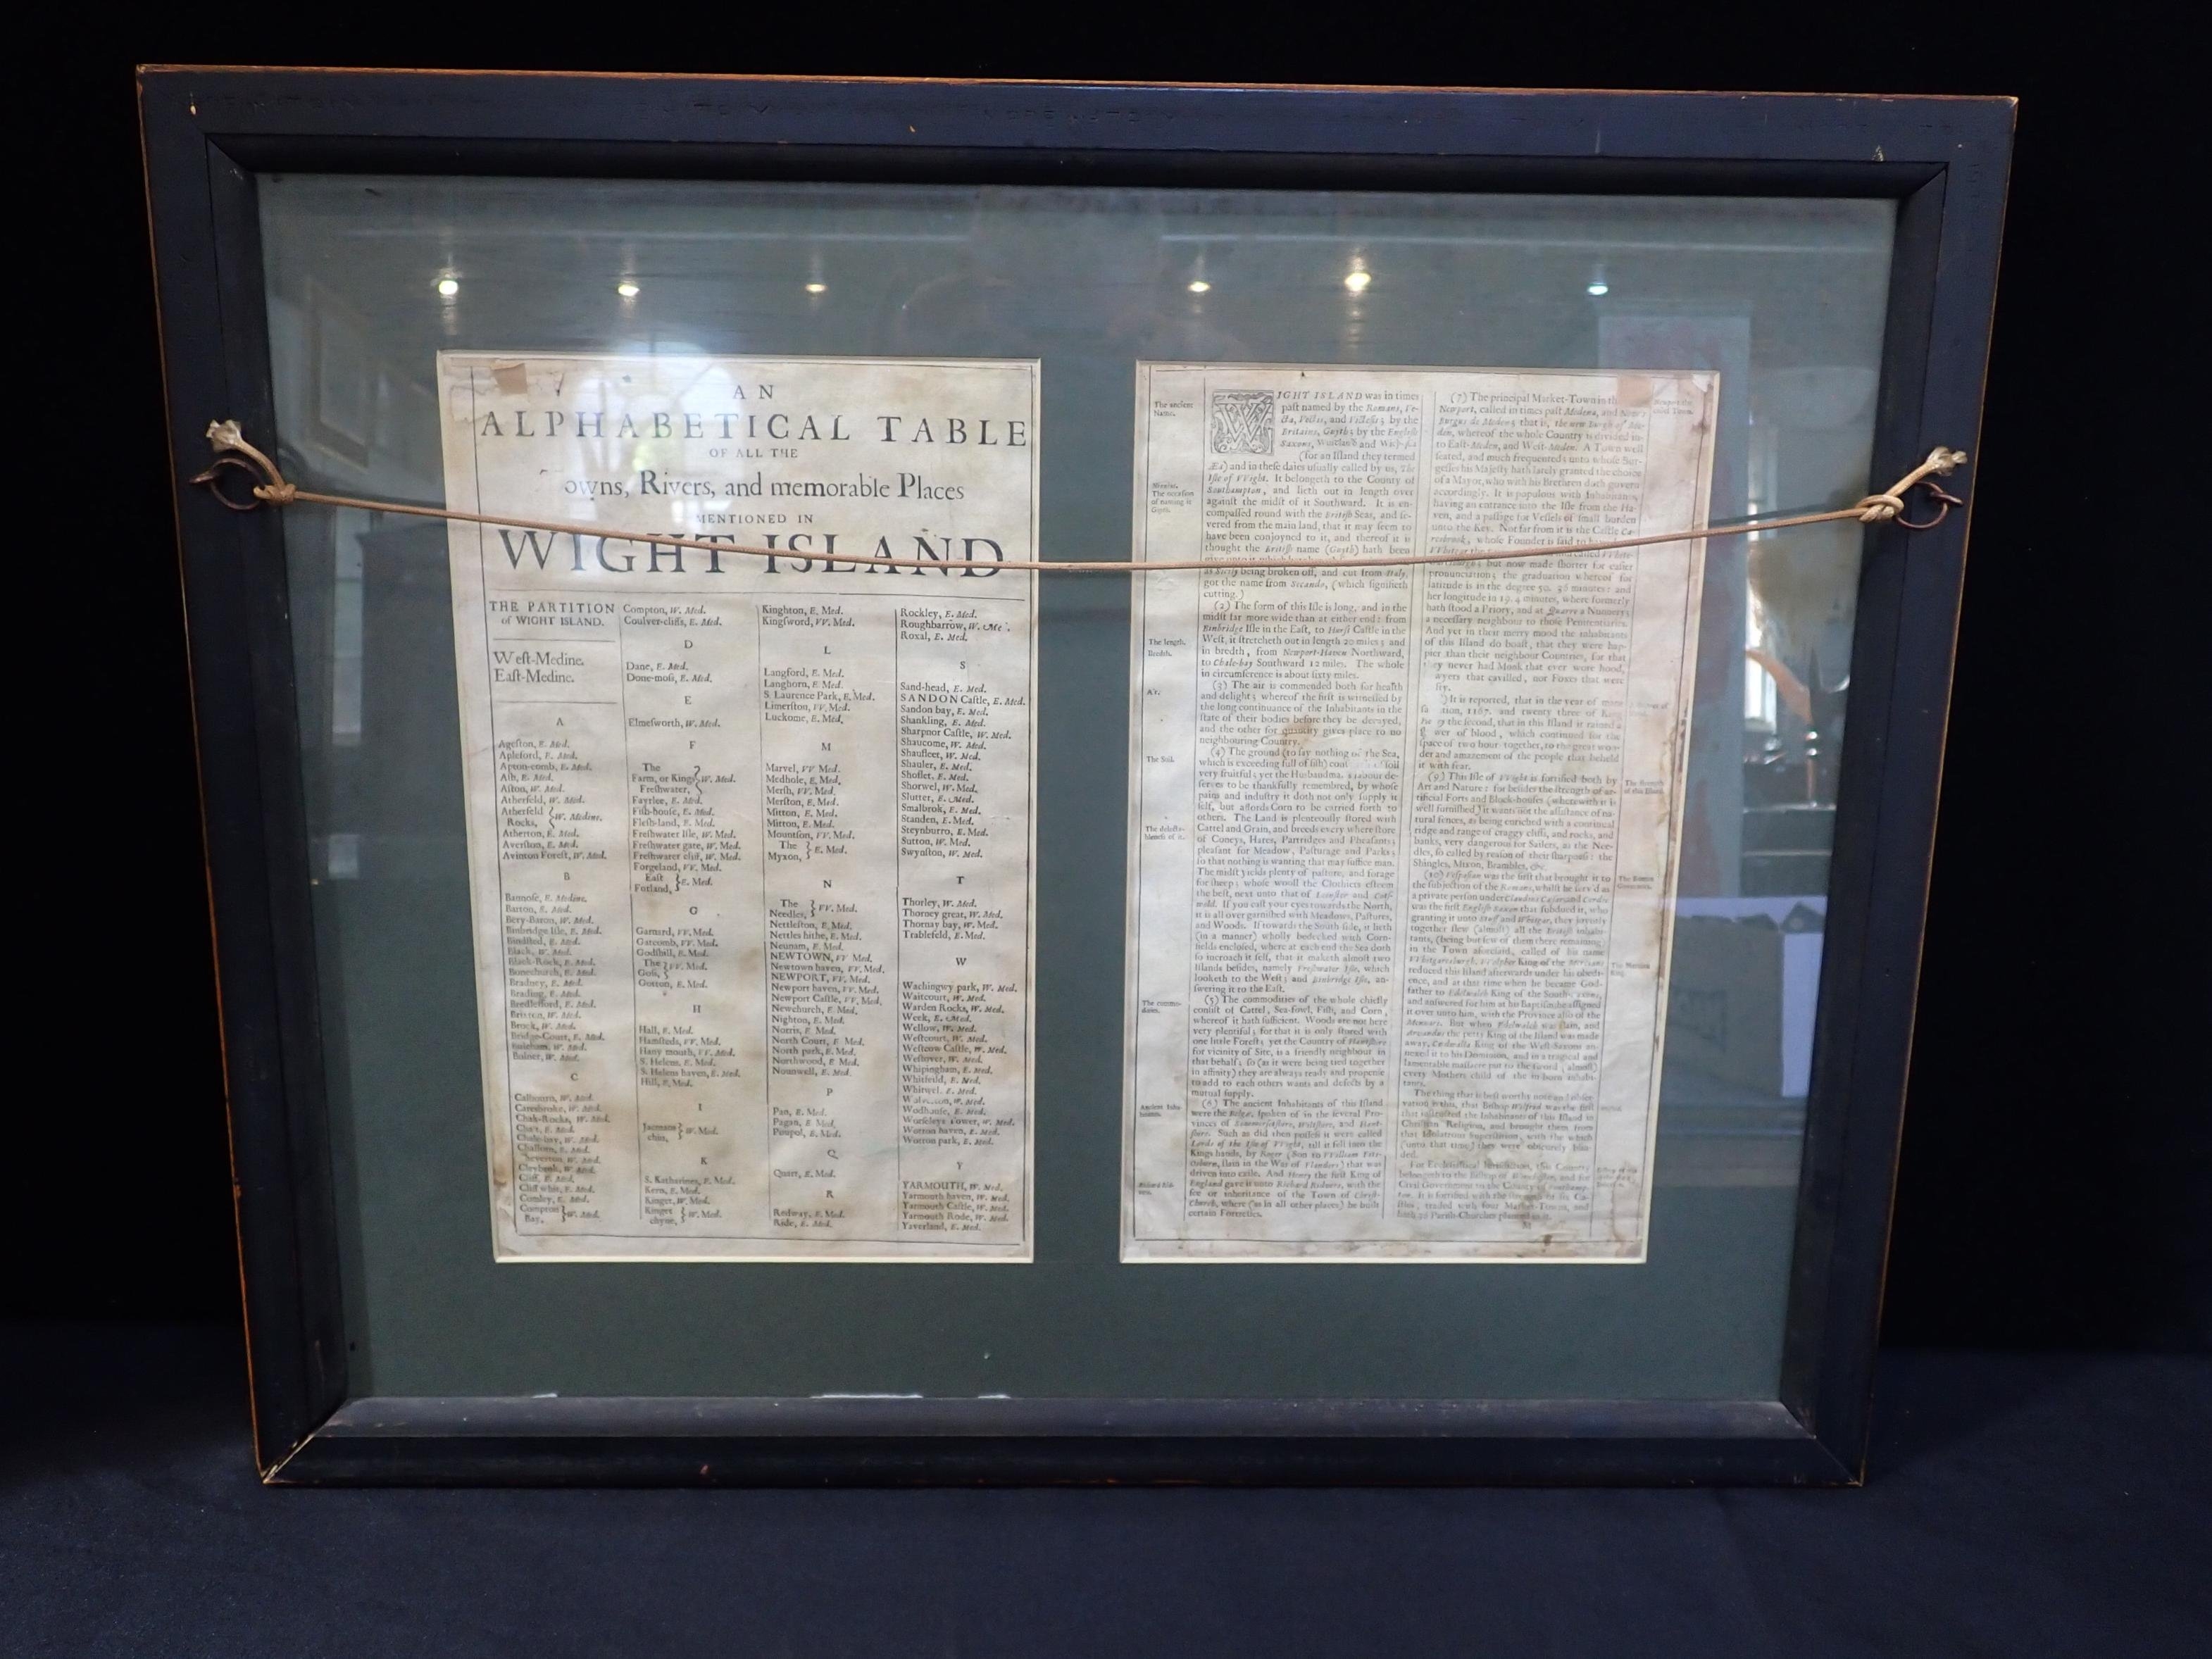 AN
ALPHABETICAL TABLE
OF ALL THE
owns, Rivers, and memorable Places
MENTIONED IN
WIGHT ISLAND
THE PARTITION
of WIGHT ISLAND.
Weſt-Medine.
Eaſt-Medine.
A
Ageſton, E. Med.
Apleford, E. Med.
Apton-comb, E. Med.
Aſh, E. Med.
Aſton, W. Med.
Atherfeld, W. Med.
Atherfeld } W. Medine.
Rocks,
Atherton, E. Med.
Averſton, E. Med.
Avinton Foreſt, W. Med.
B
Bannoſe, E. Medine.
Barton, E. Med.
Bery-Baron, W. Med.
Binbridge Iſle, E. Med.
Binſted, E. Med.
Black, W. Med.
Black-Rock, E. Med.
Bonechurch, E. Med.
Bradney, E. Med.
Brading, E. Med.
Bredleford, E. Med.
Brixton, W. Med.
Brock, W. Med.
Bridge-Court, E. Med.
C
Calbourn, W. Med.
Caresbroke, W. Med.
Chalk-Rocks, W. Med.
Chale-bay, W. Med.
Cliff, E. Med.
Comley, E. Med.
Compton } W. Med.
Bay,
Compton, W. Med.
Coulver-cliffs, E. Med.
D
Dane, E. Med.
Done-moſi, E. Med.
E
Elmeſworth, W. Med.
F
The
Farm, or Kings } W. Med.
Freſhwater,
Fayrlee, E. Med.
Fiſh-houſe, E. Med.
Fleſh-land, E. Med.
Freſhwater Iſle, W. Med.
Freſhwater gate, W. Med.
Freſhwater cliff, W. Med.
Forgeland, VV. Med.
Eaſt } E. Med.
Fotland,
G
Garnard, VV. Med.
Gatcomb, VV. Med.
Godſhill, E. Med.
The } VV. Med.
Goſe,
Gotton, E. Med.
H
Hall, E. Med.
Hamſteds, VV. Med.
Hany mouth, VV. Med.
S. Helens, E. Med.
S. Helens haven, E. Med.
Hill, E. Med.
I
Jacmans } W. Med.
chin,
K
S. Katharines, E. Med.
Kern, E. Med.
Kinget, W. Med.
Kinges } W. Med.
chyne,
Kinghton, E. Med.
Kingſword, VV. Med.
L
Langford, E. Med.
Langhorn, E. Med.
S. Laurence Park, E. Med.
Limerſton, VV. Med.
Luckome, E. Med.
M
Marvel, VV Med.
Medhole, E. Med.
Merſh, VV. Med.
Merſton, E. Med.
Mitton, E. Med.
Mitton, E. Med.
Mountſon, VV. Med.
The } E. Med.
Myxon,
N
The } VV. Med.
Needles,
Nettleſton, E. Med.
Nettles hithe, E. Med.
Neunam, E. Med.
NEWTOWN, VV Med.
Newtown haven, VV. Med.
NEWPORT, VV. Med.
Newport haven, VV. Med.
Newport Caſtle, VV. Med.
Newchurch, E. Med.
Nighton, E. Med.
Norris, E. Med.
North Court, E Med.
North park, E. Med.
Northwood, E. Med.
Nounwell, E. Med.
P
Pan, E. Med.
Pagan, E Med.
Pimpol, E. Med.
Q
Quarr, E. Med.
R
Redway, E. Med.
Ride, E. Med.
Rockley, E. Med.
Roughbarrow, W.
Roxal, E. Med.
S
Sand-head, E. Med.
SANDON Caſtle, E. Med.
Sandon bay, E. Med.
Shankling, E. Med.
Sharpnor Caſtle, W. Med.
Shaucome, W. Med.
Shaufleet, W. Med.
Shauler, E. Med.
Shoflet, E. Med.
Shorwel, W. Med.
Slutter, E. Med.
Smalbrok, E. Med.
Standen, E. Med.
Steynburro, E. Med.
Sutton, W. Med.
Swynſton, W. Med.
T
Thorley, W. Med.
Thorney great, W. Med.
Thornay bay, W. Med.
Trablefeld, E. Med.
W
Wachingwy park, W. Med.
Waitcourt, W. Med.
Warden Rocks, W. Med.
Week, E. Med.
Wellow, W. Med.
Weſtcourt, W. Med.
Weſtcow Caſtle, W. Med.
Weſtover, W. Med.
Whipingham, E. Med.
Whitfeild, E. Med.
Whitwel. E. Med.
Wodhouſe, E. Med.
Worſeleys Tower, W. Med.
Wotton haven, E. Med.
Wotton park, E. Med.
Y
YARMOUTH, W. Med.
Yarmouth haven, W. Med.
Yarmouth Caſtle, W. Med.
Yarmouth Rode, W. Med.
Yaverland, E. Med.
The ancient
Name.
WIGHT ISLAND was in times
paſt named by the Romans, Ve-
cta, Vectis, and Victeſis; by the
Britains, Guyth; by the Engliſh
Saxons,
(for an Iſland they termed
Ea) and in theſe daies uſually called by us, The
Iſle of VVight. It belongeth to the County of
Southampton, and lieth out in length over
againſt the midſt of it Southward. It is en-
compaſſed round with the Britiſh Seas, and ſe-
vered from the main land, that it may ſeem to
have been conjoyned to it, and thereof it is
thought the Britiſh name (Guyth) hath been
as Sicily being broken off, and cut from Italy,
got the name from Secando, (which ſignifieth
cutting.)
The length.
Bredth.
(2) The form of this Iſle is long, and in the
midſt far more wide than at either end: from
Binbridge Iſle in the Eaſt, to Hurſt Caſtle in the
Weſt, it ſtretcheth out in length 20 miles; and
in breadth, from Newport-Haven Northward,
to Chale-bay Southward 12 miles. The whole
in circumference is about ſixty miles.
(3) The air is commended both for health
and delight; whereof the firſt is witneſſed by
the long continuance of the Inhabitants in the
ſtate of their bodies before they be decayed,
and the other for quantity gives place to no
neighbouring Country.
The Soil.
(4) The ground (to ſay nothing of the Sea,
which is exceeding full of fiſh) ſoil
very fruitful; yet the Husbandmans labour de-
ſerves to be thankfully remembred, by whoſe
pains and induſtry it doth not only ſupply it
ſelf, but affords Corn to be carried forth to
others. The Land is plenteouſly ſtored with
Cattel and Grain, and breeds every where ſtore
of Coneys, Hares, Partridges and Pheaſants;
pleaſant for Meadow, Paſturage and Parks;
ſo that nothing is wanting that may ſuffice man.
The midſt yields plenty of paſture, and forage
for ſheep; whoſe wooll the Clothiers eſteem
the beſt, next unto that of
If you caſt your eyes towards the North,
it is all over garniſhed with Meadows, Paſtures,
and Woods. If towards the South ſide, it lieth
(in a manner) wholly bedecked with Corn-
fields encloſed, where at each end the Sea doth
ſo incroach it ſelf, that it maketh almoſt two
Iſlands beſides, namely Freſhwater Iſle, which
looketh to the Weſt; and Binbridge Iſle, an-
ſwering it to the Eaſt.
The commo-
dities.
(5) The commodities of the whole chiefly
conſiſt of Cattel, Sea-fowl, Fiſh, and Corn,
whereof it hath ſufficient. Woods are not here
very plentiful; for that it is only ſtored with
one little Foreſt; yet the Country of Hantſhire
for vicinity of Site, is a friendly neighbour in
that behalf; ſo (as it were being tied together
in affinity) they are always ready and propenſe
to add to each others wants and defects by a
mutual ſupply.
(6) The ancient Inhabitants of this Iſland
were the Belgæ, ſpoken of in the ſeveral Pro-
vinces of Sommerſetſhire, Wiltſhire, and Hant-
ſhire. Such as did then poſſeſs it were called
Lords of the Iſle of VVight, till it fell into the
Kings hands, by Roger (Son to VVilliam Fitz-
Osborn, ſlain in the War of Flanders) that was
driven into exile. And Henry the firſt King of
England gave it unto Richard Ridvers, with the
fee or inheritance of the Town of Chriſt-
Church, where (as in all other places) he built
certain Fortreſſes.
(7) The principal Market-Town in th
Newport, called in times paſt Medena, and
Burgus de Medena; that is, the new Burgh of Me-
den, whereof the whole Country is divided in-
to Eaſt-Meden, and Weſt-Meden. A Town well
ſeated, and much frequented; unto whoſe Bur-
geſſes his Majeſty hath lately granted the choice
of a Mayor, who with his Brethren doth govern
accordingly. It is populous with Inhabitants,
having an entrance into the Iſle from the Ha-
ven, and a paſſage for Veſſels of ſmall burden
unto the Key. Not far from it is the Caſtle Ca-
resbrook, whoſe Founder is ſaid to
but now made ſhorter for eaſier
pronunciation; the graduation whereof for
latitude is in the degree 50. 36 minutes: and
her longitude in 19. 4 minutes, where formerly
hath ſtood a Priory, and at Quarre a Nunnery;
a neceſſary neighbour to thoſe Penitentiaries.
And yet in their merry mood the inhabitants
of this Iſland do boaſt, that they were hap-
pier than their neighbour Countries, for that
they never had Monk that ever wore hood,
awyers that cavilled, nor Foxes that were
It is reported, that in the year of mans
tion, 1167. and twenty three of King
the ſecond, that in this Iſland it rained a
wer of blood, which continued for the
ſpace of two hours together, to the great won-
der and amazement of the people that beheld
it with fear.
The ſtrength
of this Iſland.
(9) This Iſle of VVight is fortified both by
Art and Nature: for beſides the ſtrength of ar-
tificial Forts and Block-houſes (wherewith it is
well furniſhed) it wants not the aſſiſtance of na-
tural fences, as being enriched with a continual
ridge and range of craggy cliffs, and rocks, and
banks, very dangerous for Sailers, as the Nee-
dles, ſo called by reaſon of their ſharpneſs: the
Shingles, Mixon, Brambles, &c.
(10) Veſpaſian was the firſt that brought it to
the ſubjection of the Romans, whilſt he ſerv'd as
a private perſon under Claudius Cæſar; and Cerdic
was the firſt Engliſh Saxon that ſubdued it, who
granting it unto Stuff and Whitgar, they joyntly
together ſlew (almoſt) all the Britiſh inhabi-
tants, (being but few of them there remaining)
in the Town aforeſaid, called of his name
reduced this Iſland afterwards under his obedi-
ence, and at that time when he became God-
father to Edelwalch King of the South-Saxons,
and anſwered for him at his Baptiſm, he aſſigned
it over unto him, with the Province alſo of the
But when Edelwalch was ſlain, and
the petty King of the Iſland was made
away,
nexed it to his Dominion, and in a tragical and
lamentable maſſacre put to the ſword (almoſt)
every Mothers child of the in-born inhabi-
tants.
The thing that is beſt worthy note
that Biſhop Wilfred was the firſt
that inſtructed the Inhabitants of this Iſland in
Chriſtian Religion, and brought them from
that Idolatrous ſuperſtition, with the which
(unto that time) they were obſcurely blin-
ded.
For Eccleſiaſtical Juriſdiction, this Country
belongeth to the Biſhop of Wincheſter, and for
Civil Government to the County of
It is fortified with the ſtrength of ſix Ca-
ſtles, traded with four Market-Towns, and